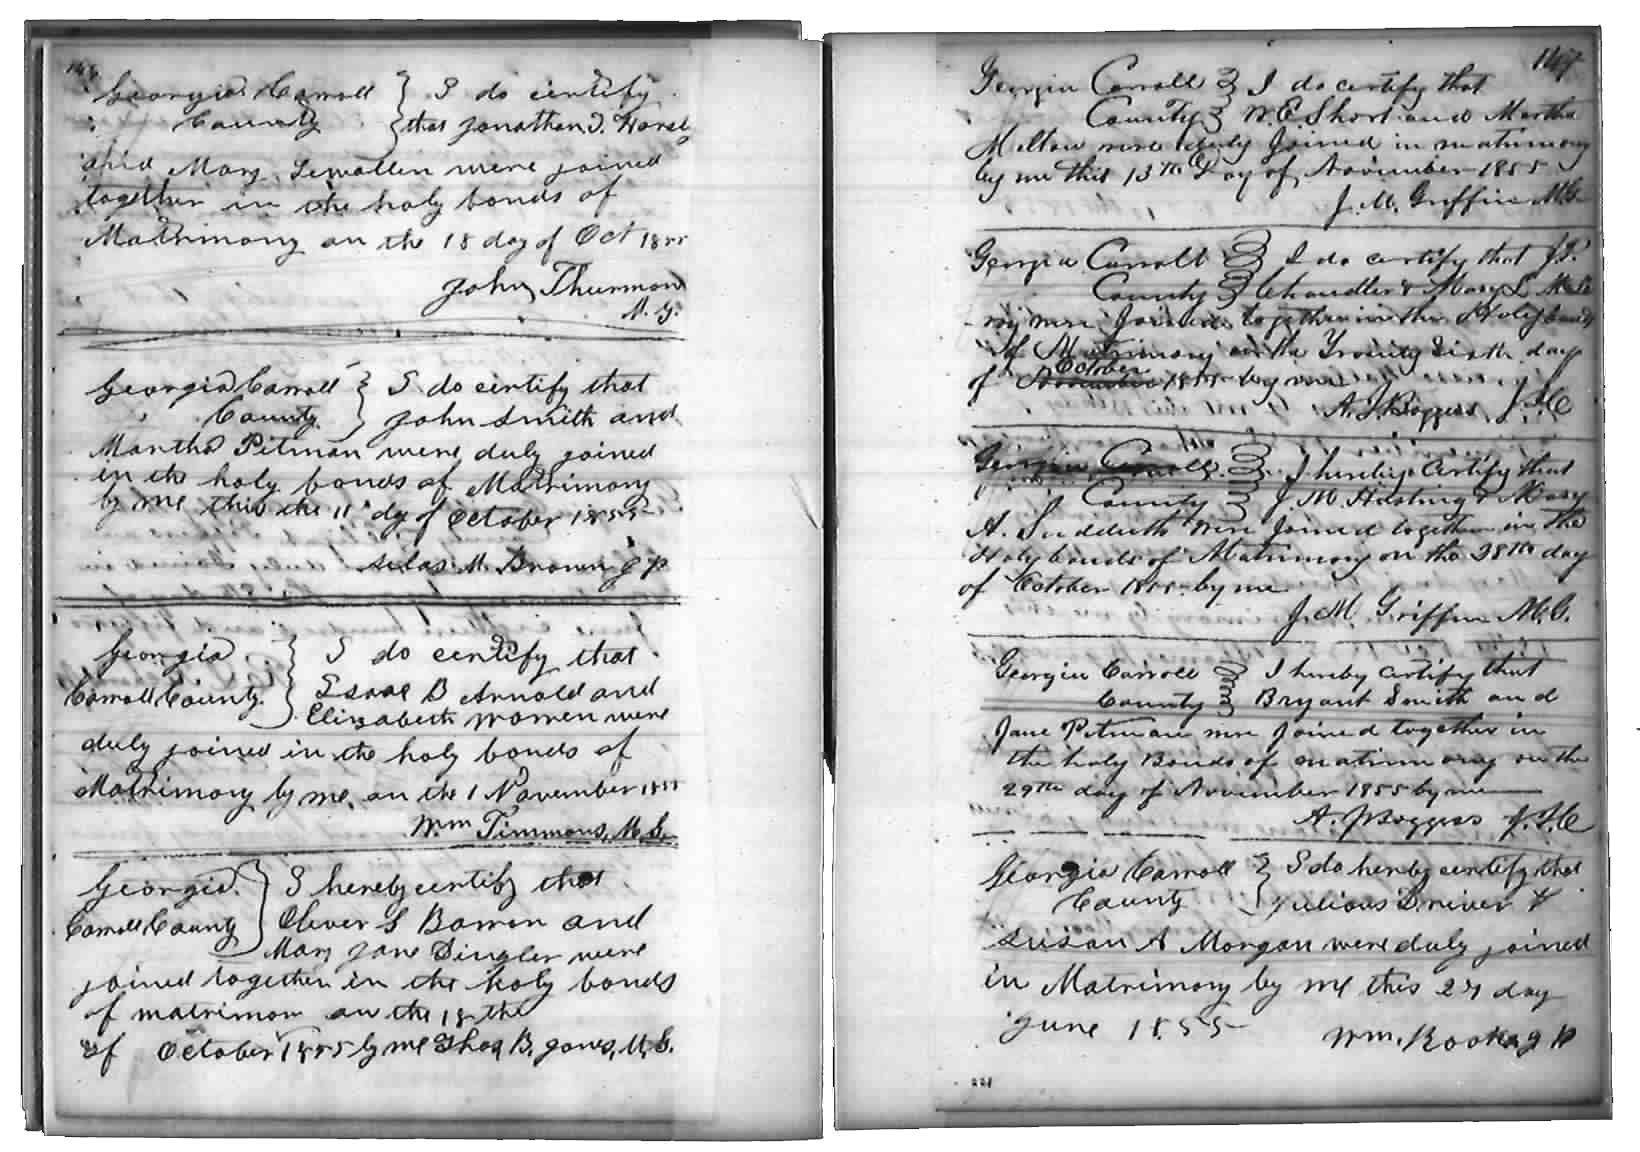 146
Georgia Carroll } I do certify
County } that Jonathan
and Mary Lewallen were joined
together in the holy bonds of
Matrimony on the 18 day of Oct 1855
John Thurmon
M. G.
Georgia Carroll } I do certify that
County } John Smith and
Martha Pitman were duly joined
in the holy bonds of Matrimony
by me this the 11 dy of October 1855
Silas M. Brown J P
Georgia } I do certify that
Carroll County } Isaac B Arnold and
Elizabeth were
duly joined in the holy bonds of
Matrimony by me on the 1 November 1855
Wm Timmons, M. G.
Georgia } I hereby certify that
Carroll County } Oliver S and
Mary Jane Dingler were
joined together in the holy bonds
of matrimon on the 18 the
of October 1855 by me Thos B. Jones, M. G.
147
Georgia Carroll } I do certify that
County } W. E Short and Martha
Milton were duly Joined in matrimony
by me this 13th Day of November 1855
J. M. Griffin M G.
Georgia Carroll } I do certify that J. P.
County } Chandler & Mary L
were Joined together in the Holy bonds
of Matrimony on the Twenty Sixth day
October
of November 1855 by me
A. J. Boggess J. I. C
Georgia Carroll } I hereby Certify that
County } J. M. Hasting & Mary
A. Sudduth were Joined together in the
Holy bonds of Matrimony on the 28th day
of October 1855 by me
J. M. Griffin M. G.
Georgia Carroll } I hereby certify that
County } Bryant Smith and
Jane Pitman were Joined together in
the holy Bonds of matrimony on the
29th day of November 1855 by me
A. J Boggess J. I. C
Georgia Carroll } I do hereby certify that
County } Julious Driver &
Susan A Morgan were duly joined
in Matrimony by me this 27 day
June 1855
Wm. J P
221